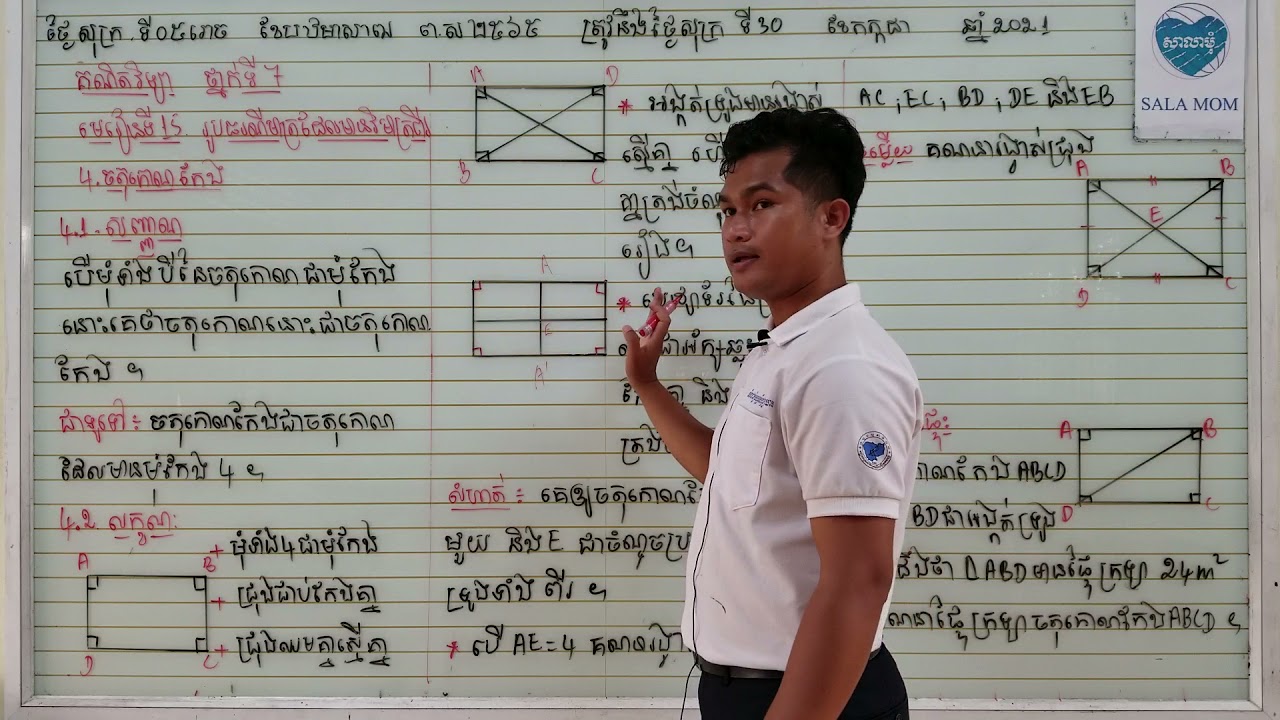 ថ្ងៃសុក្រ ទី០៥រោច ខែបឋមាសាឍ ព.ស ២៥៦៥ ត្រូវនឹងថ្ងៃសុក្រ ទី30 ខែកក្កដា ឆ្នាំ 2021
គណិតវិទ្យា ថ្នាក់ទី 7
មេរៀនទី 15
4. ចតុកោណកែង
4.1. សញ្ញាណ
បើមុំទាំង បី នៃចតុកោណជាមុំកែង
នោះគេថាចតុកោណនោះជាចតុកោណ
កែង ។
ជាទូទៅ: ចតុកោណកែងជាចតុកោណ
ដែលមានមុំកែង 4 ។
4.2. លក្ខណៈ
A B
D C
+ មុំទាំង4ជាមុំកែង
+ ជ្រុងជាប់កែងគ្នា
+ ជ្រុងឈមគ្នាស្មើគ្នា
A D
B C
A
E
A'
* អង្កត់ទ្រូងមានរង្វាស់
ស្មើគ្នា
គ្នាត្រង់ចំណុច
រៀង។
*
កែងគ្នា និង
ត្រង់
លំហាត់: គេឲ្យចតុកោណកែង
មួយ និង E ជាចំណុចប្រ
ទ្រូងទាំង ពីរ ។
* បើ AE=4 គណនារង្វា
AC , EC , BD , DE និង EB
ចម្លើយ គណនារង្វាស់ជ្រុង
A B
E
D C
ABCD
A B
D C
BD ជាអង្កត់ទ្រូង
ដឹងថា ΔABD មានផ្ទៃក្រឡា 24m²
គណនាផ្ទៃក្រឡាចតុកោណកែង ABCD ។
សាលាមុំ
SALA MOM